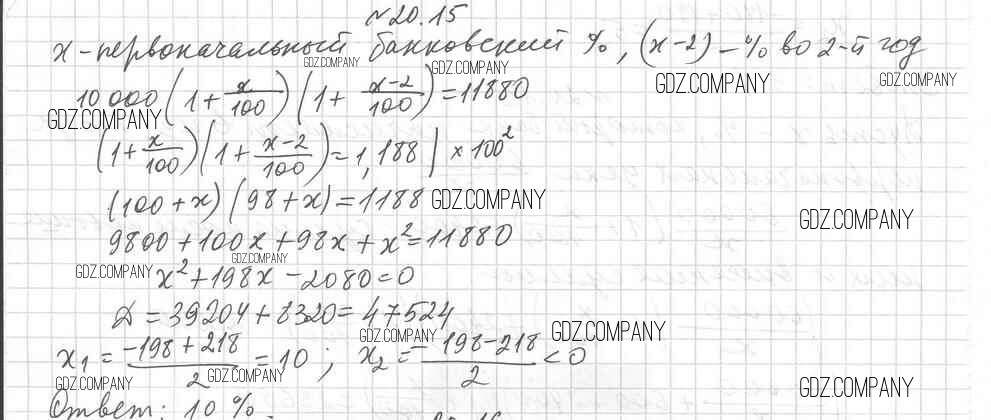 №20.15
x - первоначальный банковский %, (x-2) - % во 2-й год
GDZ.COMPANY GDZ.COMPANY GDZ.COMPANY GDZ.COMPANY
10 000 (1 + x/100) (1 + x-2/100) = 11880
GDZ.COMPANY
(1 + x/100) (1 + x-2/100) = 1,188 | × 100²
(100 + x) (98 + x) = 1188 GDZ.COMPANY
GDZ.COMPANY
9800 + 100x + 98x + x² = 11880
GDZ.COMPANY
GDZ.COMPANY x² + 198x - 2080 = 0
D = 39204 + 8320 = 47524
GDZ.COMPANY GDZ.COMPANY
x₁ = -198 + 218/2 = 10 ; x₂ = -198 - 218/2 < 0
GDZ.COMPANY GDZ.COMPANY GDZ.COMPANY
Ответ: 10 %.